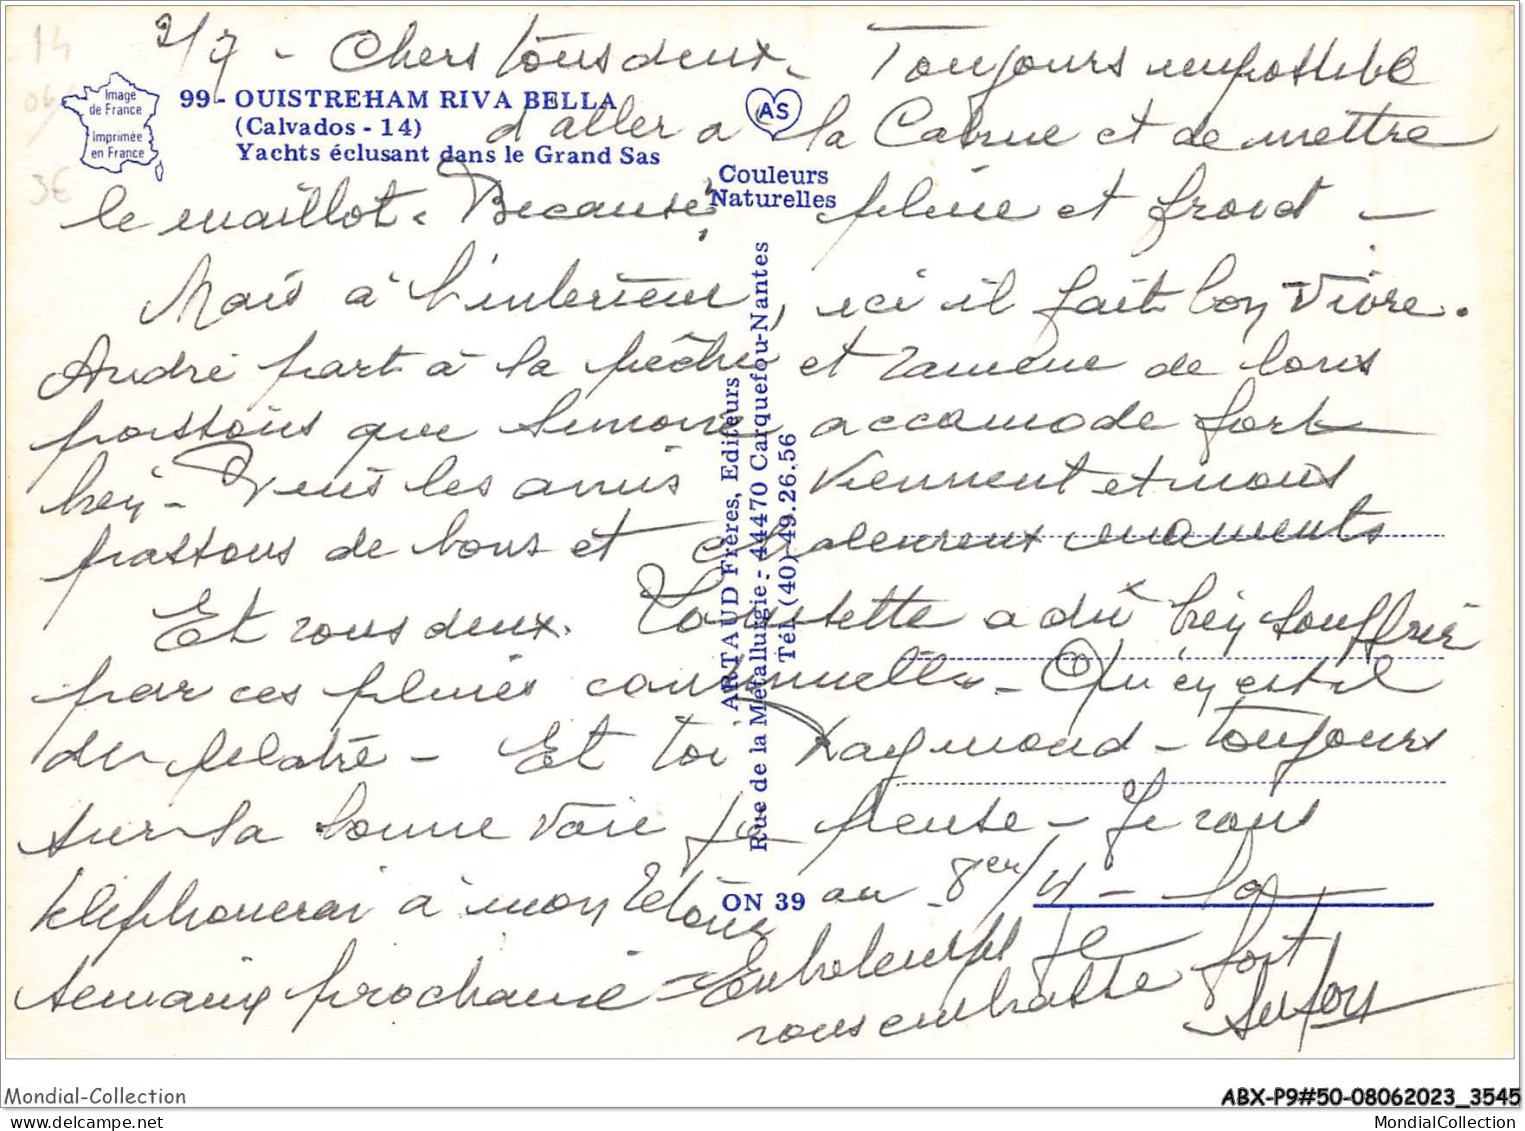 14
2/7 - Chers tous deux. Toujours impossible
Image
de France
Imprimée
en France
99 - OUISTREHAM RIVA BELLA
(Calvados - 14)
Yachts éclusant dans le Grand Sas
AS
Couleurs
Naturelles
3€
d'aller a la Cabine et de mettre
le maillot. Because pluie et froid -
Mais à l'intérieur, ici il fait bon vivre.
André part à la pêche et ramène de bons
poissons que Simone accomode fort
bien - les amis viennent et nous
passons de bons et chaleureux moments
Et vous deux. a dû bien souffrir
par ces pluies continuelles - Qu'en est il
du plâtre - Et toi Raymond - toujours
sur la bonne voie je pense - Je vous
téléphonerai à mon retour au - la
semaine prochaine = je
vous embrasse fort
ARTAUD Frères, Editeurs
Rue de la Métallurgie - 44470 Carquefou-Nantes
Tél. (40) 49.26.56
ON 39
Mondial-Collection
ABX-P9#50-08062023_3545
mondial-collection
MondialCollection